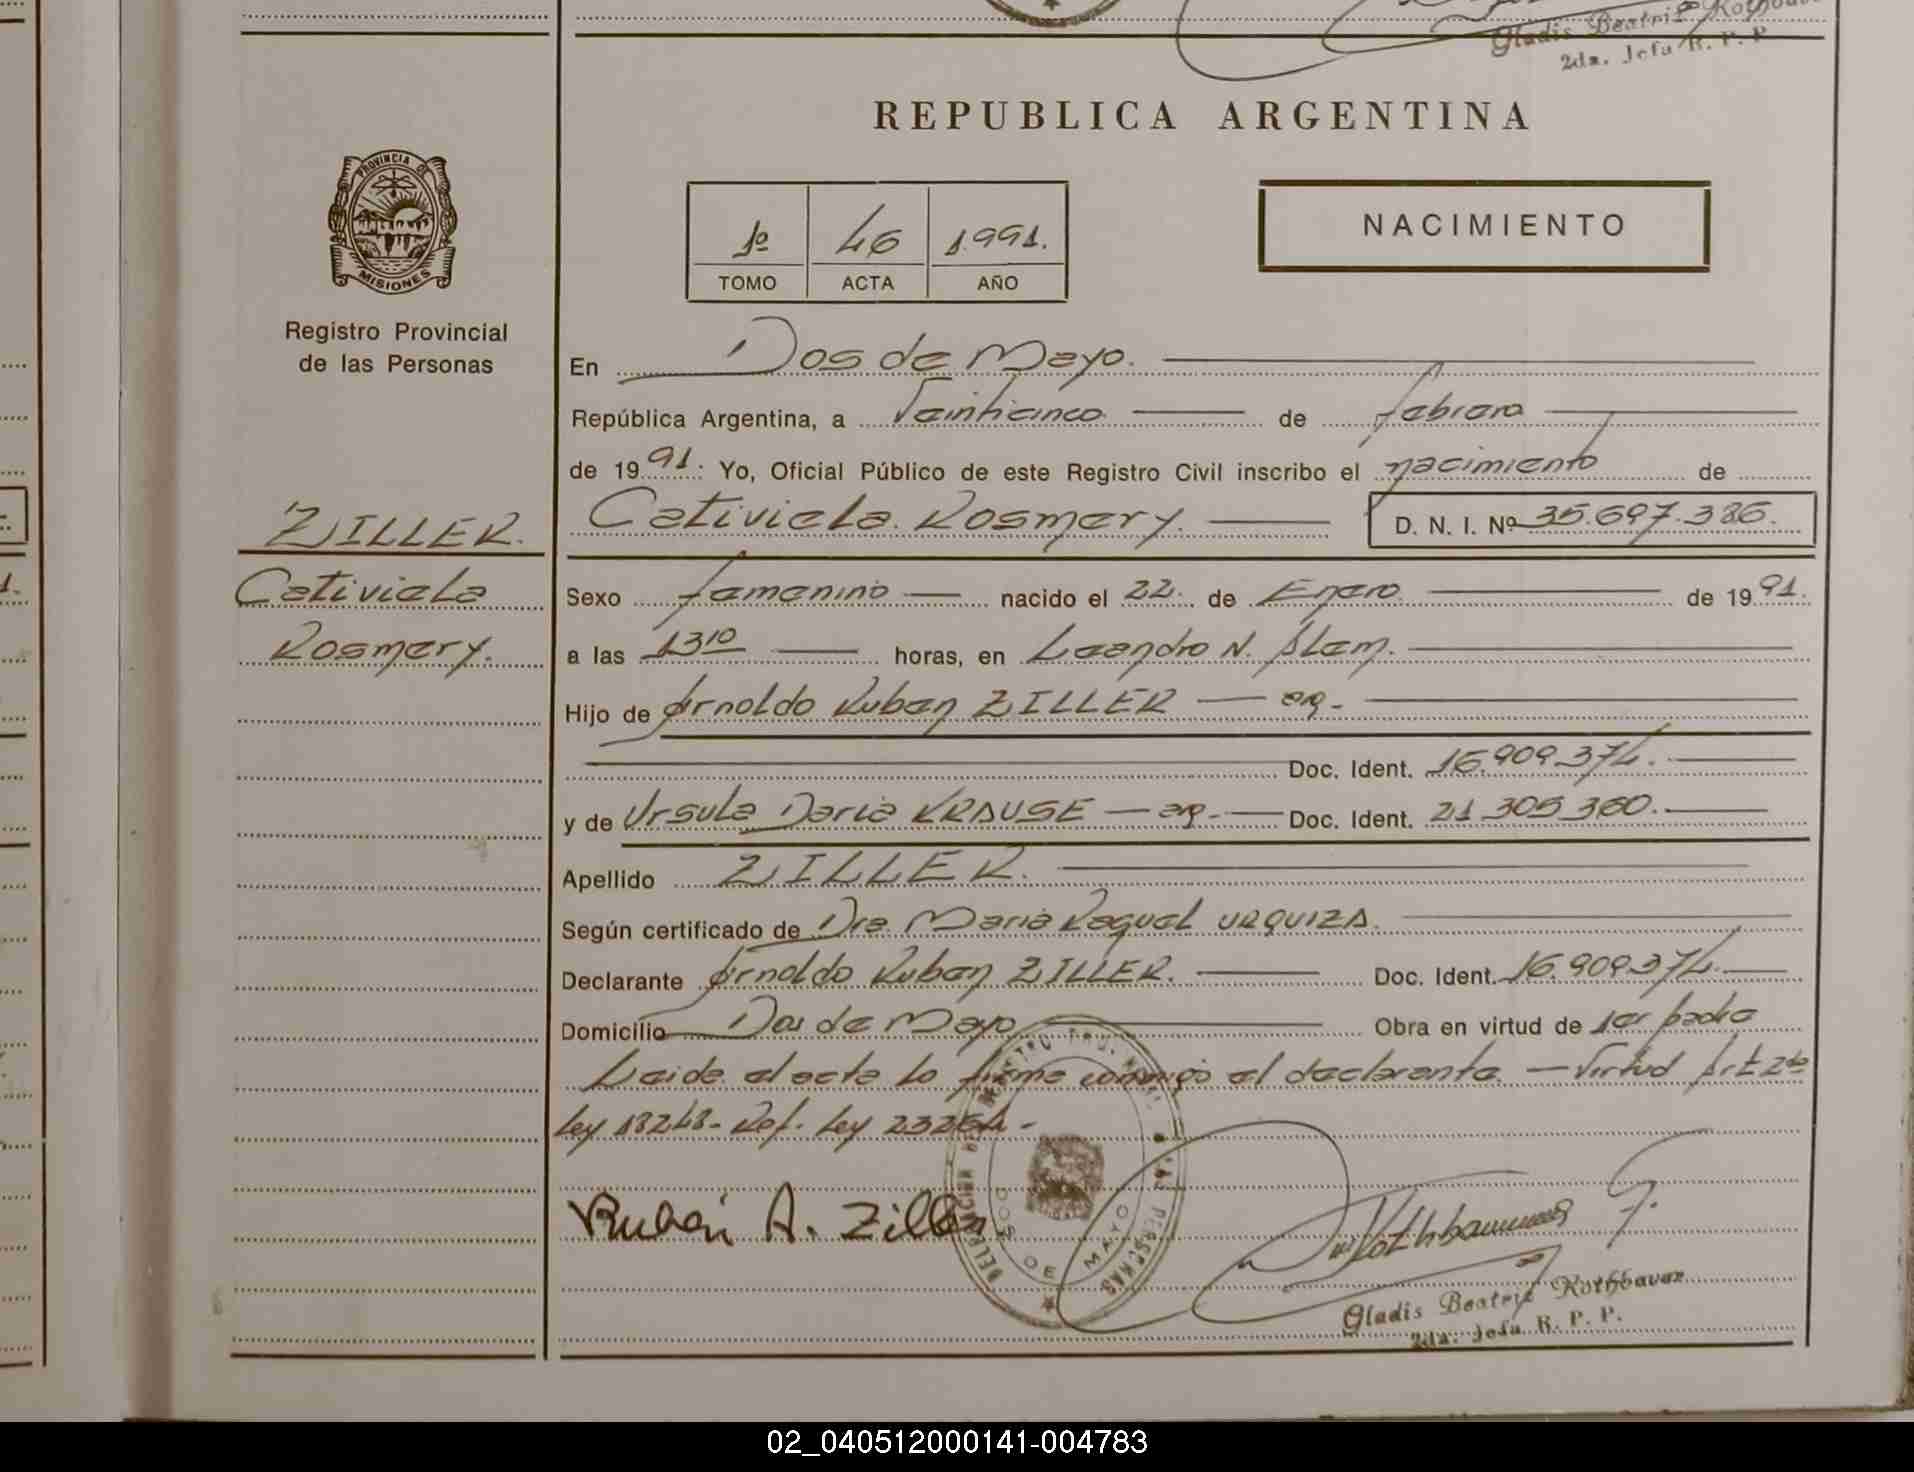 Gladis Beatriz Rothbauer
2da. Jefa R. P. P.
REPUBLICA ARGENTINA
PROVINCIA DE
MISIONES
Registro Provincial
de las Personas
1º 46 1.991.
TOMO ACTA AÑO
NACIMIENTO
En Dos de Mayo.
República Argentina, a Veinticinco de febrero
de 1991: Yo, Oficial Público de este Registro Civil inscribo el nacimiento de
Cativiela Rosmery. D. N. I. Nº 35.697.386.
ZILLER.
Cativiela
Rosmery.
Sexo femenino nacido el 22 de Enero de 1991.
a las 13 10 horas, en Leandro N. Alem.
Hijo de Arnoldo Ruben ZILLER — ar.
Doc. Ident. 16.909.374.
y de Ursula Daria KRAUSE — ar. Doc. Ident. 21.305.360.
Apellido ZILLER.
Según certificado de Dra. Maria Raquel URQUIZA.
Declarante Arnoldo Ruben ZILLER. Doc. Ident. 16.909.374.
Domicilio Dos de Mayo Obra en virtud de ser padre
Leida el acta lo firma conmigo el declarante. — Virtud Art 2do
Ley 18248. Ref. Ley 23264.
Ruben A. Ziller
DOS DE MAYO
Rothbauer
Gladis Beatriz Rothbauer
2da. Jefa R. P. P.
02_040512000141-004783